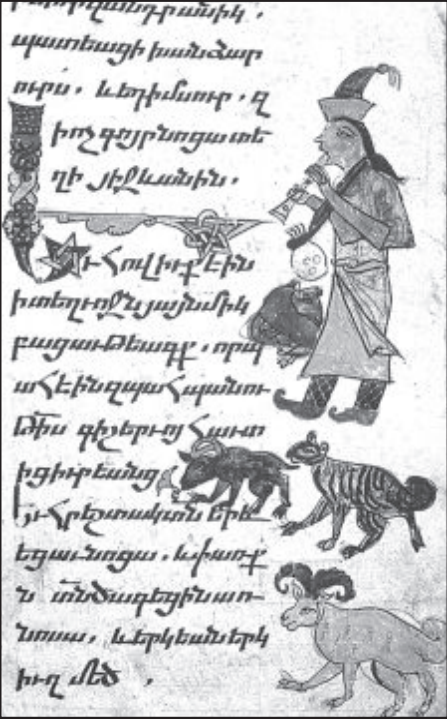 զանդրանիկ .
պատեաց ի խանձար
ուրս . և եդ ի մսուր . զ
ի ոչ գոյր նոցա տե
ղի յիջևանին .
Եւ հովիւք էին
ի տեղւոջն յայնմիկ
բացաւթեագք . որպ
ահէին զպահպանու
թիս գիշերոյ հաւտ
ից իւրեանց
հրեշտակ տն երև
եցաւ նոցա . և փառք
տն ծագեցին առ
նոսա . և երկեան երկ
իւղ մեծ .